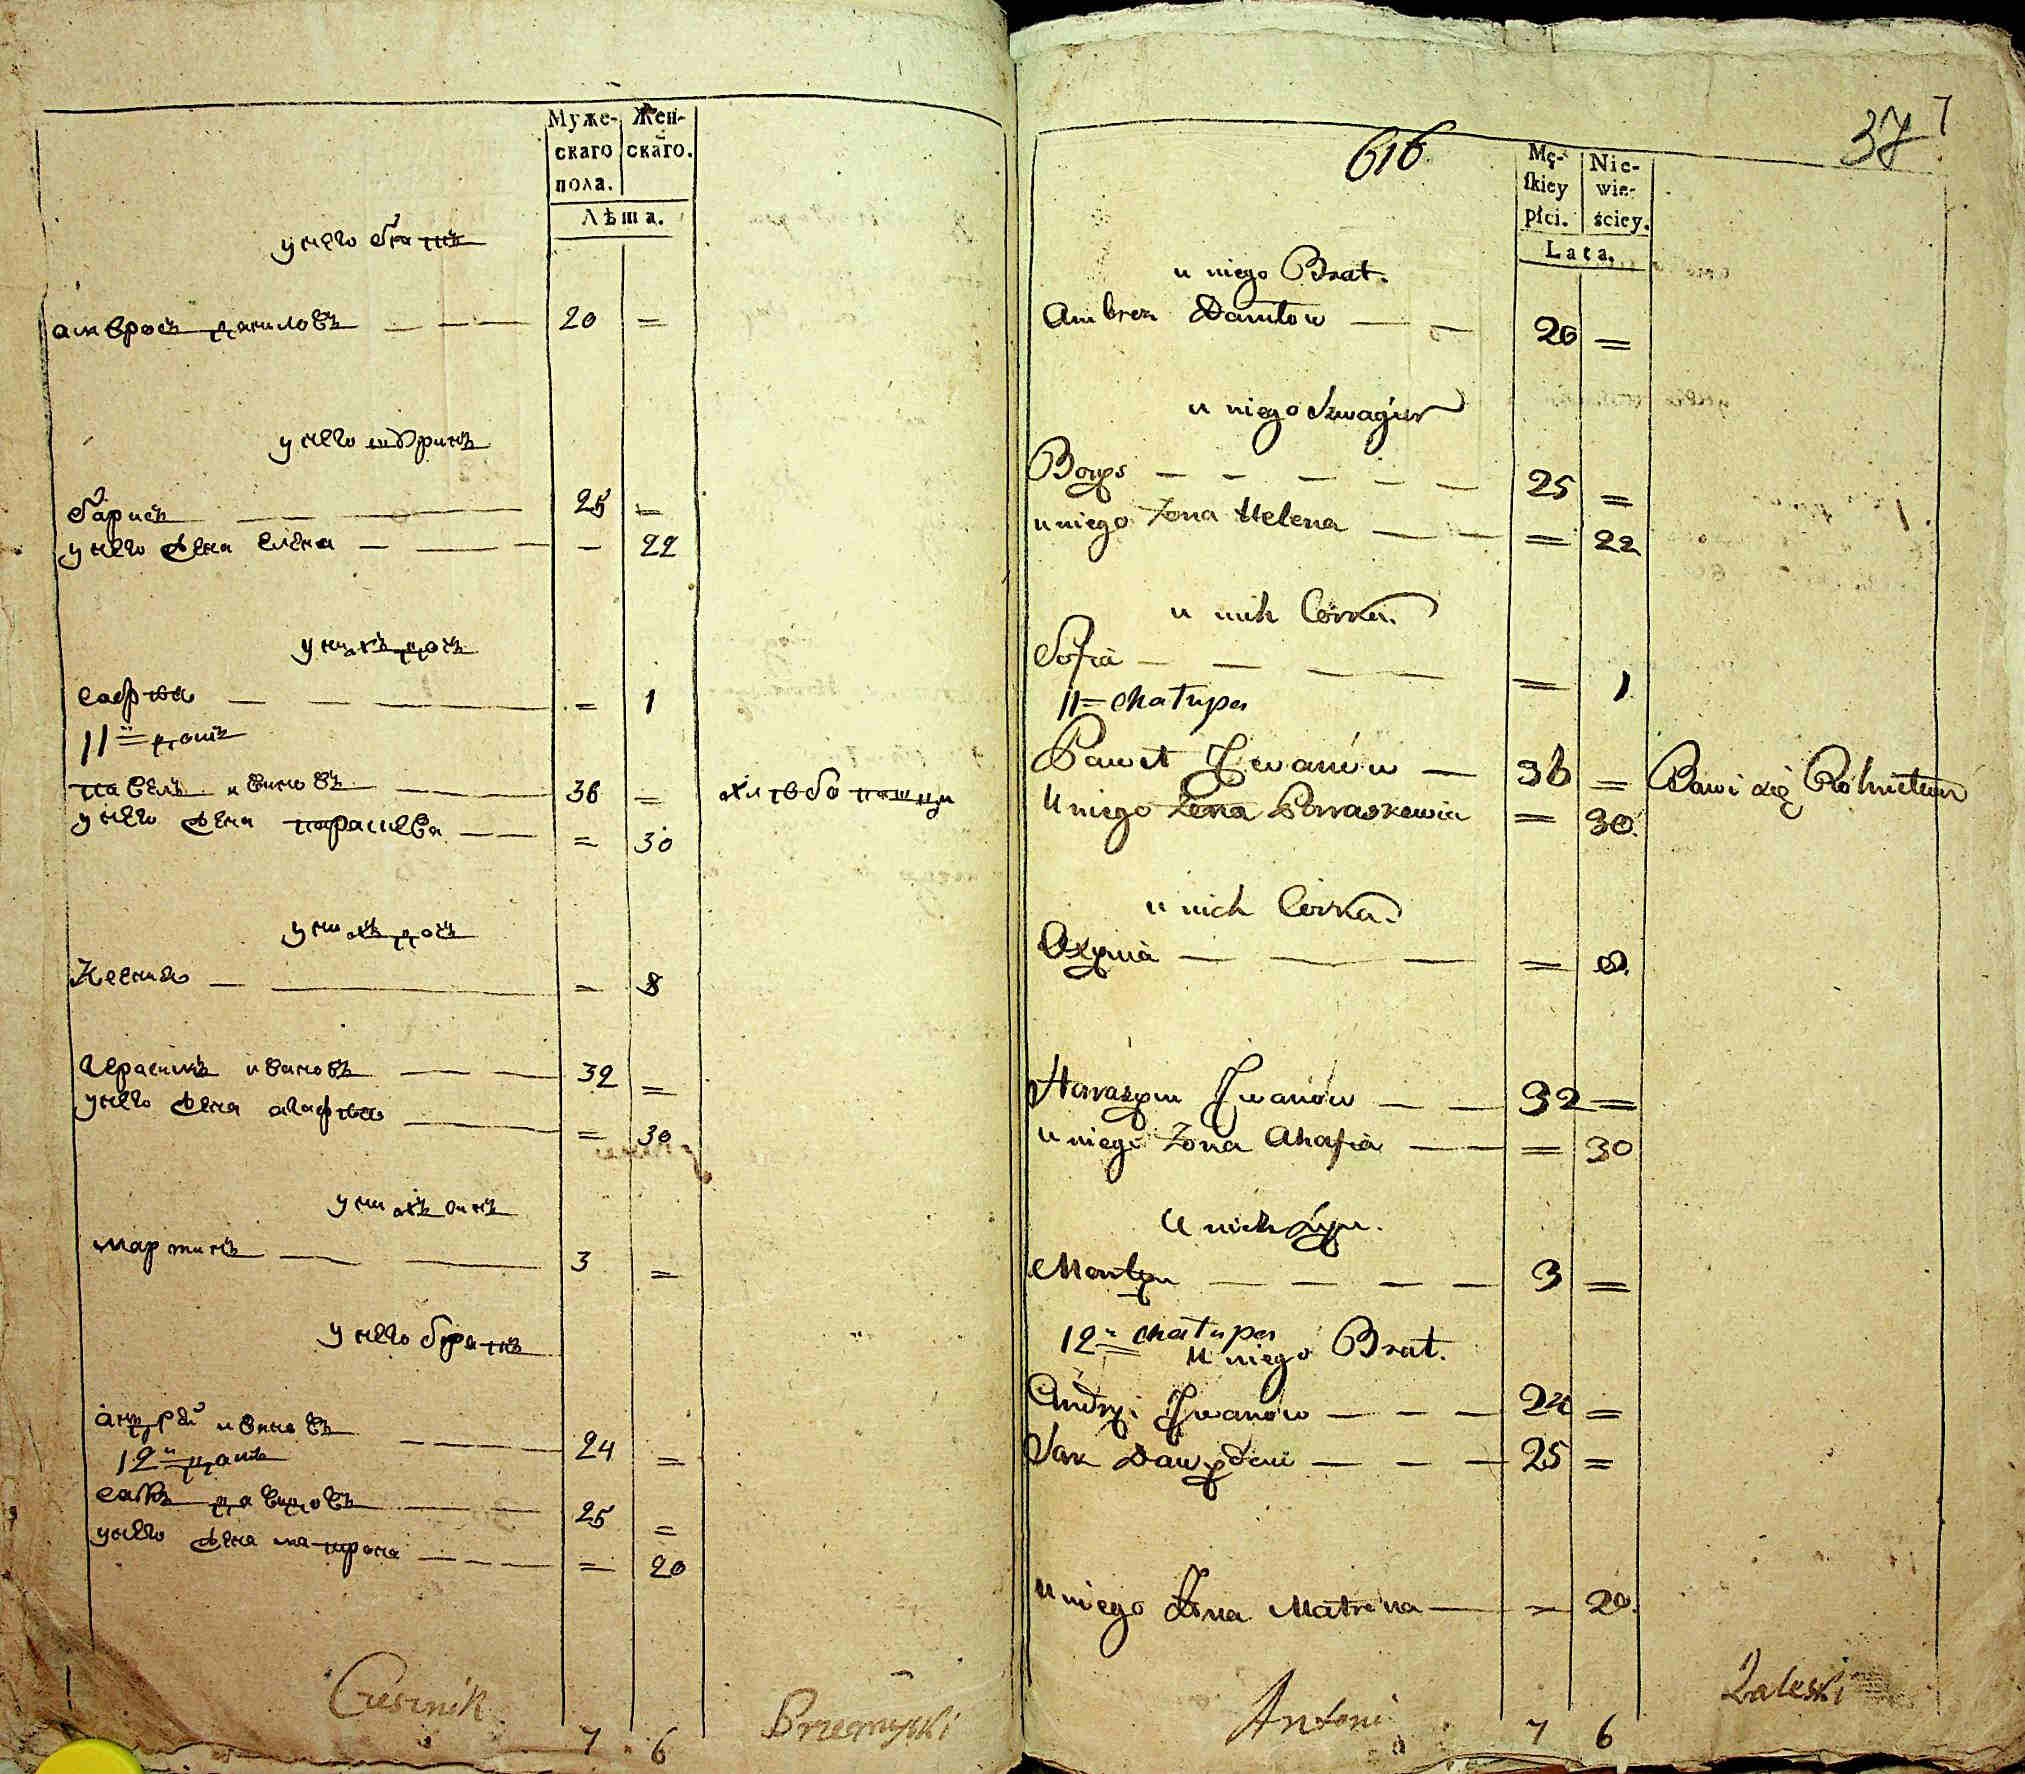 Муже- Жен-
скаго скаго.
пола.
Лѣта.
у него братъ
амвросъ даниловъ — — — 20 =
у него шваринъ
барисъ — — — 25 =
у него жена елена — — — — 22
у нихъ дочъ
софія — — — = 1
11й домъ
павелъ ивановъ — 36 = хлѣбо пашци
у него жена парасцева — — = 30
у нихъ дочъ
Ксенія — — = 8
Герасимъ ивановъ — — — 32 =
у него жена агафія — = 30
у нихъ синъ
мартинъ — — — 3 =
у него братъ
андрей ивановъ — — 24 =
12й домъ
савъ давидовъ — — 25 =
у него жена матрона — — — = 20
Cześnik Przemyski
7 6
37 7
616
Mę- Nie-
skiey wie-
płci. ściey.
Lata.
u niego Brat.
Ambroz Daniłow — — 20 =
u niego Szwagier
Borys — — — — — 25 =
u niego Żona Helena — — — = 22
u nich Córka.
Sofia — — — — = 1
11= Chałupa
Paweł Jwanów — 36 = Bawi się Rolnictwem
U niego Żona Parraskewia = 30.
u nich Córka.
Oxynia — — — = 8.
Harasym Jwanów — — 32 =
u niego Żona Ahafia — — = 30
U nich Syn.
Martyn — — — — 3 =
12= Chałupa
U niego Brat.
Andryi Jwanów — — — 24 =
Sak Dawydow — — — 25 =
U niego Żona Matrona — = 20.
Antoni Zaleski
7 6